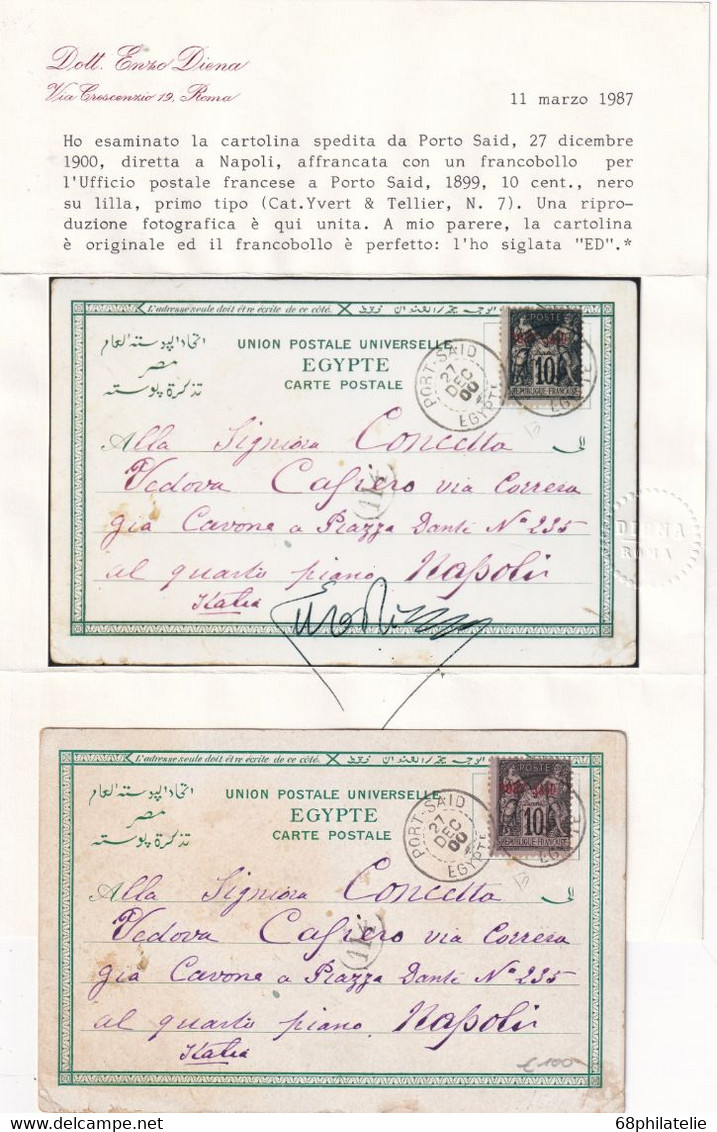 Dott. Enzo Diena
Via Crescenzio 19, Roma
11 marzo 1987
Ho esaminato la cartolina spedita da Porto Said, 27 dicembre
1900, diretta a Napoli, affrancata con un francobollo per
l'Ufficio postale francese a Porto Said, 1899, 10 cent., nero
su lilla, primo tipo (Cat.Yvert & Tellier, N. 7). Una ripro-
duzione fotografica è qui unita. A mio parere, la cartolina
è originale ed il francobollo è perfetto: l'ho siglata "ED".*
L'adresse seule doit être écrite de ce côté.
اتحاد البوسته العام
مصر
تذكرة بوسته
UNION POSTALE UNIVERSELLE
EGYPTE
CARTE POSTALE
PORT-SAID
27
DEC
00
EGYPTE
POSTE
PORT-SAID
10
REPUBLIQUE FRANÇAISE
EGYPTE
الى
Alla Signora Concetta
Vedova Cafiero via Correra
già Cavone a Piazza Dante Nº 235
al quarto piano Napoli
Italia
DIENA
ROMA
L'adresse seule doit être écrite de ce côté.
اتحاد البوسته العام
مصر
تذكرة بوسته
UNION POSTALE UNIVERSELLE
EGYPTE
CARTE POSTALE
PORT-SAID
27
DEC
00
EGYPTE
POSTE
PORT-SAID
10
REPUBLIQUE FRANÇAISE
EGYPTE
الى
Alla Signora Concetta
Vedova Cafiero via Correra
già Cavone a Piazza Dante Nº 235
al quarto piano Napoli
Italia
68philatelie